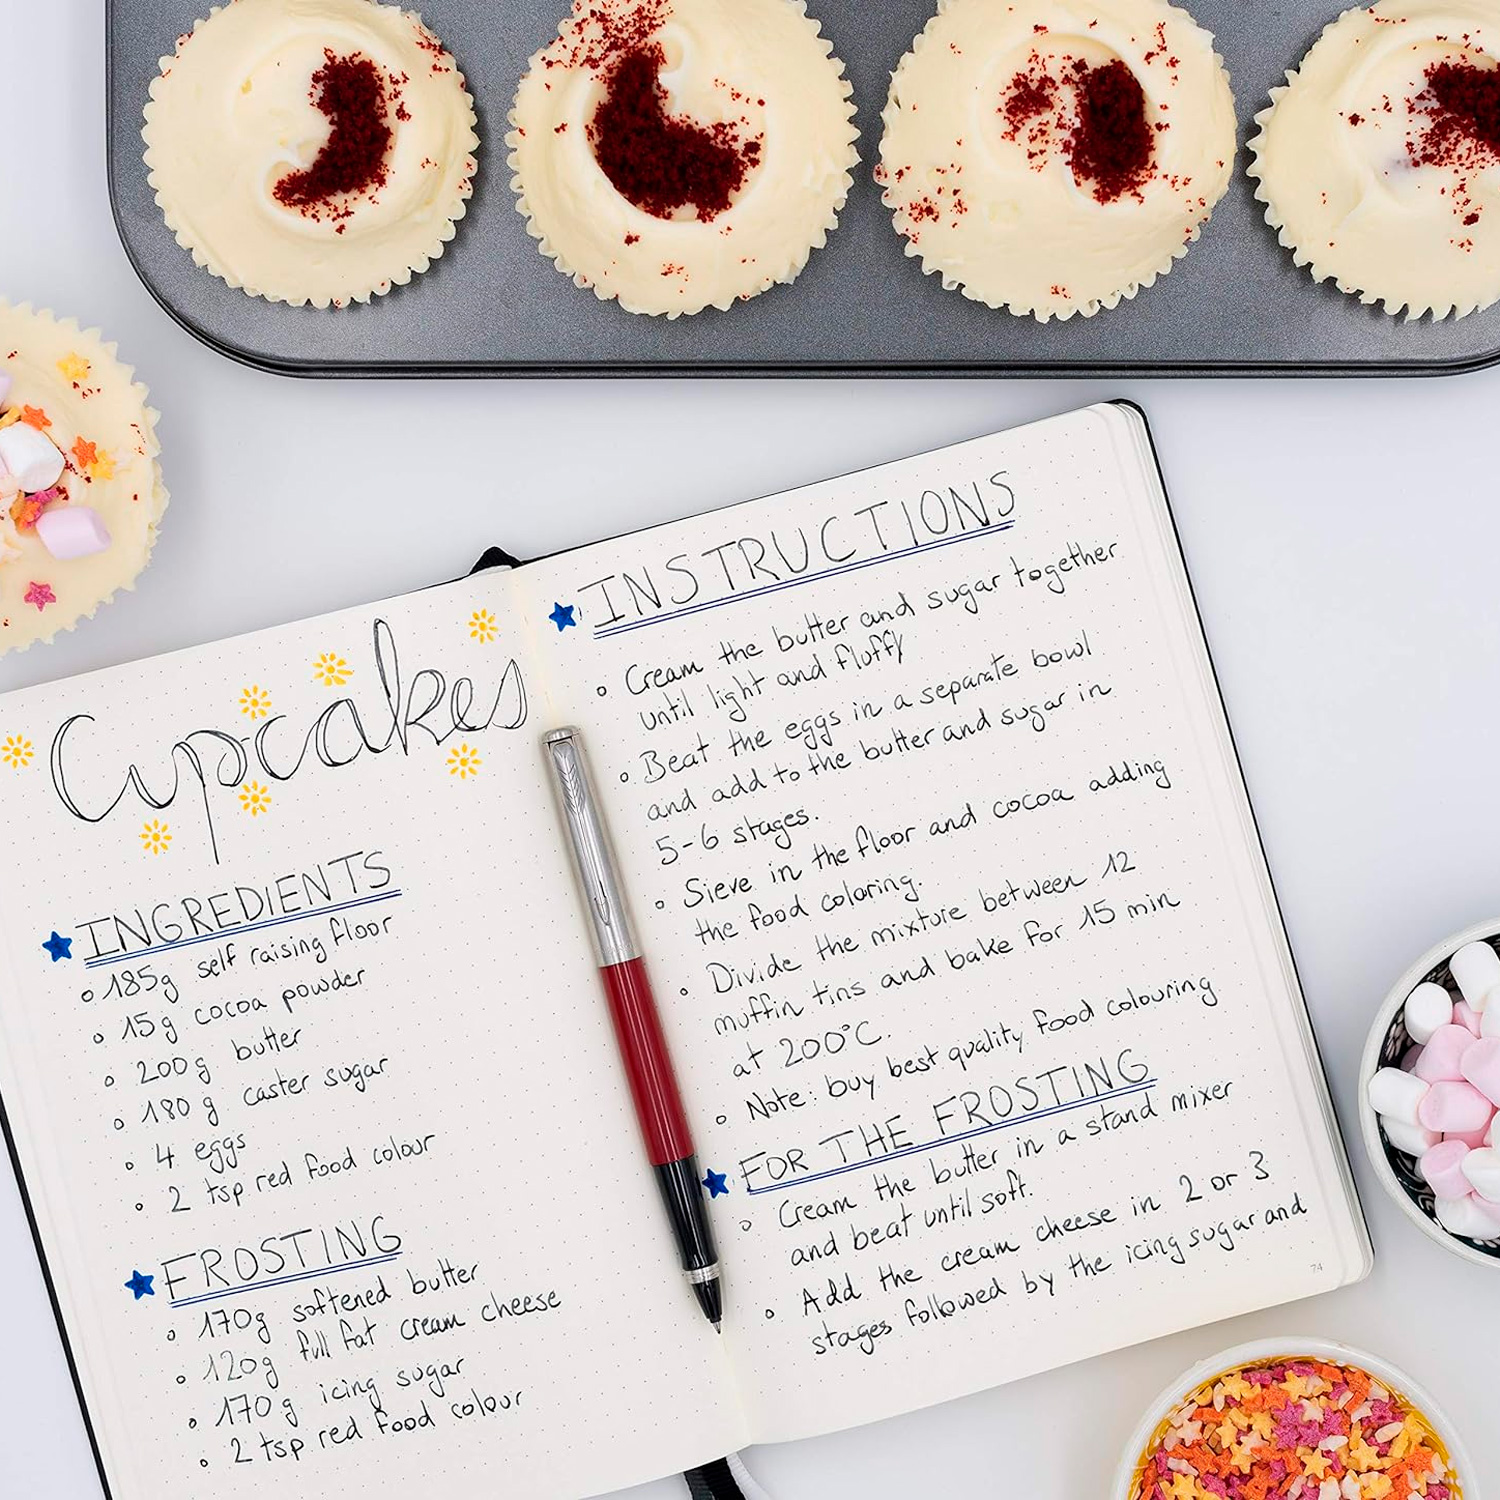 Cupcakes
INGREDIENTS
185g self raising floor
15g cocoa powder
200g butter
180g caster sugar
4 eggs
2 tsp red food colour
FROSTING
170g softened butter
120g full fat cream cheese
170g icing sugar
2 tsp red food colour
INSTRUCTIONS
Cream the butter and sugar together
until light and fluffy
Beat the eggs in a separate bowl
and add to the butter and sugar in
5-6 stages.
Sieve in the floor and cocoa adding
the food coloring.
Divide the mixture between 12
muffin tins and bake for 15 min
at 200°C.
Note: buy best quality food colouring
FOR THE FROSTING
Cream the butter in a stand mixer
and beat until soft.
Add the cream cheese in 2 or 3
stages followed by the icing sugar and
74